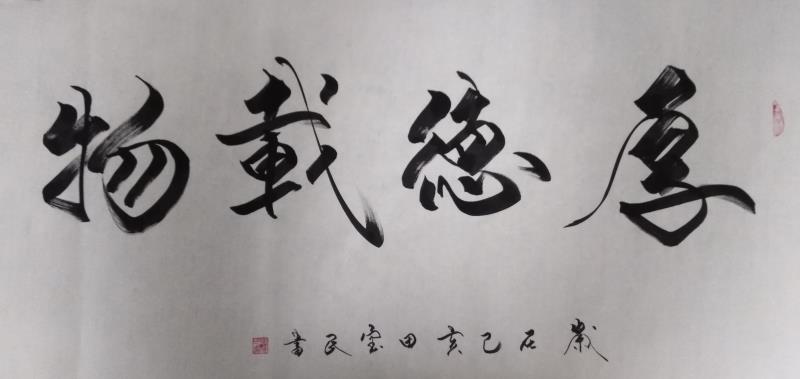 厚德載物
歲在己亥田宝民書